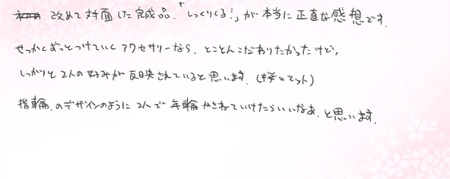 改めて対面した完成品。「しっくりくる!」が本当に正直な感想です。
せっかくずっとつけていくアクセサリーなら、とことんこだわりたかったけど、
しっかりと2人の好みが反映されていると思います。(桜とマット)
指輪のデザインのように2人で年輪かさねていけたらいいなぁ、と思います。